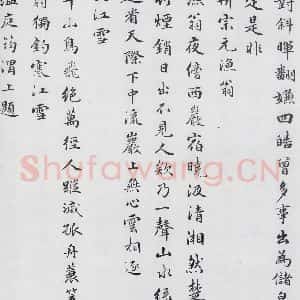 對斜暉翻嫌四皓曾多事出為儲皇
定是非
柳宗元漁翁
漁翁夜傍西巖宿曉汲清湘然楚
竹煙銷日出不見人欸乃一聲山水綠
迴看天際下中流巖上無心雲相逐
又江雪
千山鳥飛絕萬徑人蹤滅孤舟蓑笠
翁獨釣寒江雪
溫庭筠渭上題
Shufawang.CN